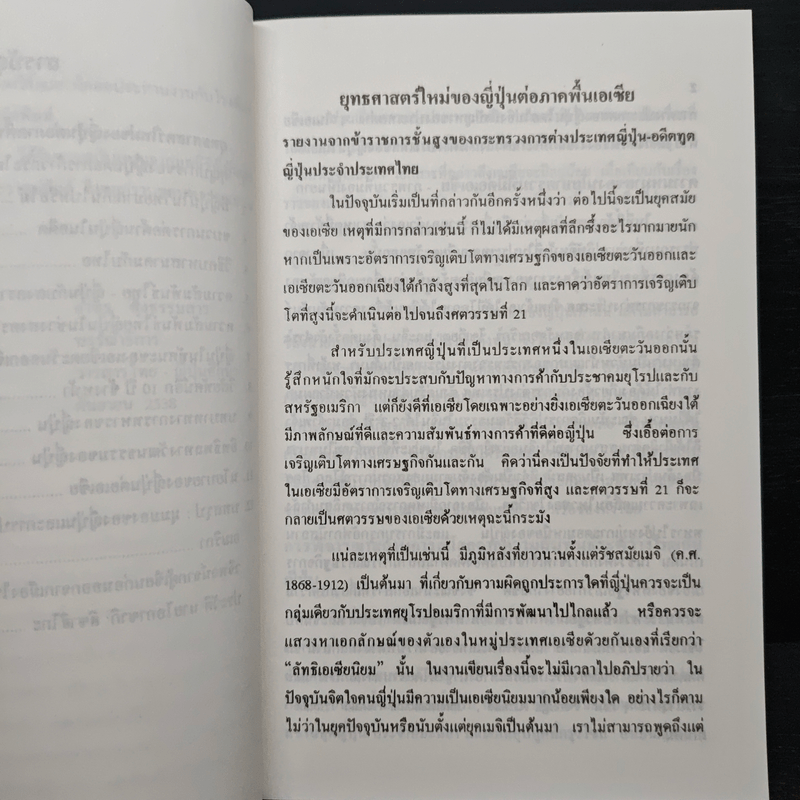 ยุทธศาสตร์ใหม่ของญี่ปุ่นต่อภาคพื้นเอเซีย
รายงานจากข้าราชการชั้นสูงของกระทรวงการต่างประเทศญี่ปุ่น-อดีตทูต
ญี่ปุ่นประจำประเทศไทย
ในปัจจุบันเริ่มเป็นที่กล่าวกันอีกครั้งหนึ่งว่า ต่อไปนี้จะเป็นยุคสมัย
ของเอเซีย เหตุที่มีการกล่าวเช่นนี้ ก็ไม่ได้มีเหตุผลที่ลึกซึ้งอะไรมากมายนัก
หากเป็นเพราะอัตราการเจริญเติบโตทางเศรษฐกิจของเอเซียตะวันออกและ
เอเซียตะวันออกเฉียงใต้กำลังสูงที่สุดในโลก และคาดว่าอัตราการเจริญเติบ
โตที่สูงนี้จะดำเนินต่อไปจนถึงศตวรรษที่ 21
สำหรับประเทศญี่ปุ่นที่เป็นประเทศหนึ่งในเอเซียตะวันออกนั้น
รู้สึกหนักใจที่มักจะประสบกับปัญหาทางการค้ากับประชาคมยุโรปและกับ
สหรัฐอเมริกา แต่ก็ยังดีที่เอเซียโดยเฉพาะอย่างยิ่งเอเซียตะวันออกเฉียงใต้
มีภาพลักษณ์ที่ดีและความสัมพันธ์ทางการค้าที่ดีต่อญี่ปุ่น ซึ่งเอื้อต่อการ
เจริญเติบโตทางเศรษฐกิจกันและกัน คิดว่านี่คงเป็นปัจจัยที่ทำให้ประเทศ
ในเอเซียมีอัตราการเจริญเติบโตทางเศรษฐกิจที่สูง และศตวรรษที่ 21 ก็จะ
กลายเป็นศตวรรษของเอเซียด้วยเหตุฉะนี้กระมัง
แน่ละเหตุที่เป็นเช่นนี้ มีภูมิหลังที่ยาวนานตั้งแต่รัชสมัยเมจิ (ค.ศ.
1868-1912) เป็นต้นมา ที่เกี่ยวกับความผิดถูกประการใดที่ญี่ปุ่นควรจะเป็น
กลุ่มเดียวกับประเทศยุโรปอเมริกาที่มีการพัฒนาไปไกลแล้ว หรือควรจะ
แสวงหาเอกลักษณ์ของตัวเองในหมู่ประเทศเอเซียด้วยกันเองที่เรียกว่า
“ลัทธิเอเซียนิยม” นั้น ในงานเขียนเรื่องนี้จะไม่มีเวลาไปอภิปรายว่า ใน
ปัจจุบันจิตใจคนญี่ปุ่นมีความเป็นเอเซียนิยมมากน้อยเพียงใด อย่างไรก็ตาม
ไม่ว่าในยุคปัจจุบันหรือนับตั้งแต่ยุคเมจิเป็นต้นมา เราไม่สามารถพูดถึงแต่